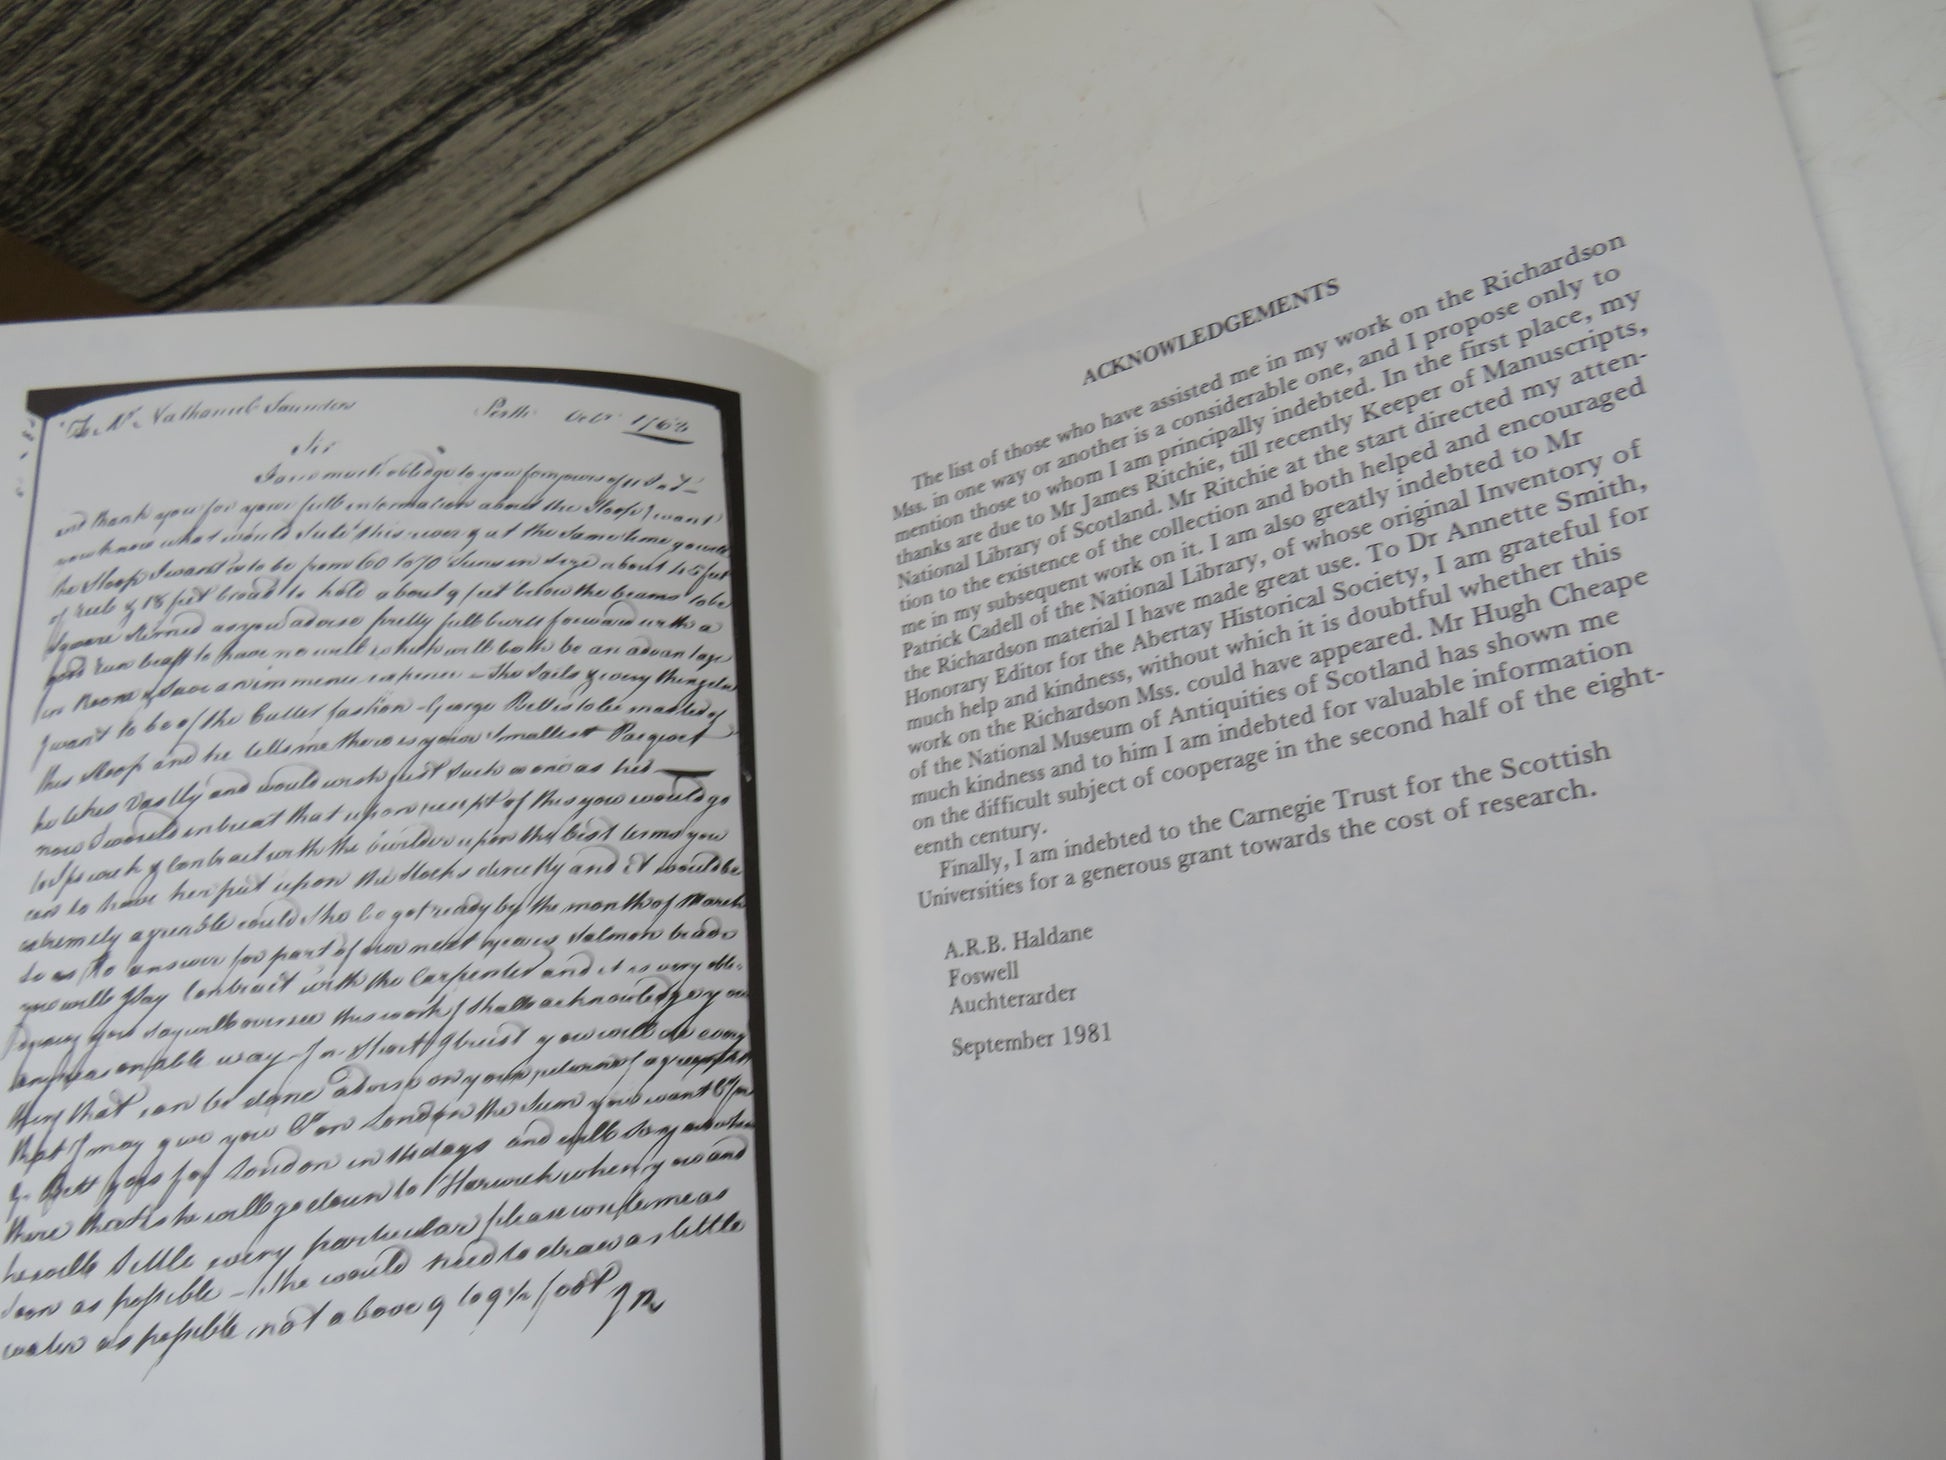 To Mr Nathaniel Saunders Perth Octr 1768
Sir
I am much obledge to you for yours of
and thank you for your full information about the Sloop I want
you know what would Sute this river & at the Same time
the Sloop I want is to be from 60 to 70 Tuns in Size about 45 feet
of keel & 18 feet broad to hold about 9 feet below the beams to be
Square Sterned as you advise pretty full built forward with a
good run beaft to have no well which will both be an advantage
in Room & Save an immence expence - The Sails & every thing else
I want to be of the Cutter fashion - George Bett is to be master of
this Sloop and he tells me there is your Smallest Pacquet
he likes Vastly and would wish just Such a one as hir
now I would intreat that upon receipt of this you would go
to Ipswich & Contract with the builder upon the best terms you
can to have her put upon the Stocks directly and it would be
extremely agreeable could She be got ready by the month of March
So as to answer for part of our next years Salmon trade
you will Contract with the Carpenter and it is very
you say will oversee this work I shall acknowledge you
any reasonable way - In Short I trust you will do every
thing that can be done advise on your
that I may give you on London the Sum you want
Bett goes for London in 14 days and will
there he will go down to Harwich when you and
he will Settle every particular please write me as
Soon as possible - She would need to draw as little
water as possible not above 9 to 9½ foot
ACKNOWLEDGEMENTS
The list of those who have assisted me in my work on the Richardson
Mss. in one way or another is a considerable one, and I propose only to
mention those to whom I am principally indebted. In the first place, my
thanks are due to Mr James Ritchie, till recently Keeper of Manuscripts,
National Library of Scotland. Mr Ritchie at the start directed my atten-
tion to the existence of the collection and both helped and encouraged
me in my subsequent work on it. I am also greatly indebted to Mr
Patrick Cadell of the National Library, of whose original Inventory of
the Richardson material I have made great use. To Dr Annette Smith,
Honorary Editor for the Abertay Historical Society, I am grateful for
much help and kindness, without which it is doubtful whether this
work on the Richardson Mss. could have appeared. Mr Hugh Cheape
of the National Museum of Antiquities of Scotland has shown me
much kindness and to him I am indebted for valuable information
on the difficult subject of cooperage in the second half of the eight-
eenth century.
Finally, I am indebted to the Carnegie Trust for the Scottish
Universities for a generous grant towards the cost of research.
A.R.B. Haldane
Foswell
Auchterarder
September 1981